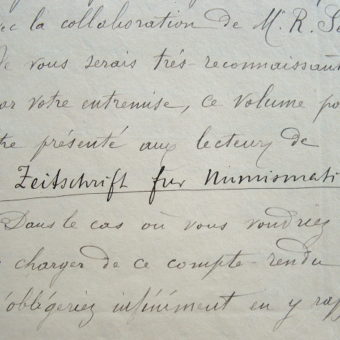 la collaboration de Mr. R.
vous serais très-reconnaissant
votre entremise, ce volume
présenté aux lecteurs de
Zeitschrift fur Numismati
Dans le cas où vous voudriez
charger de ce compte-rendu
obligeriez infiniment en y